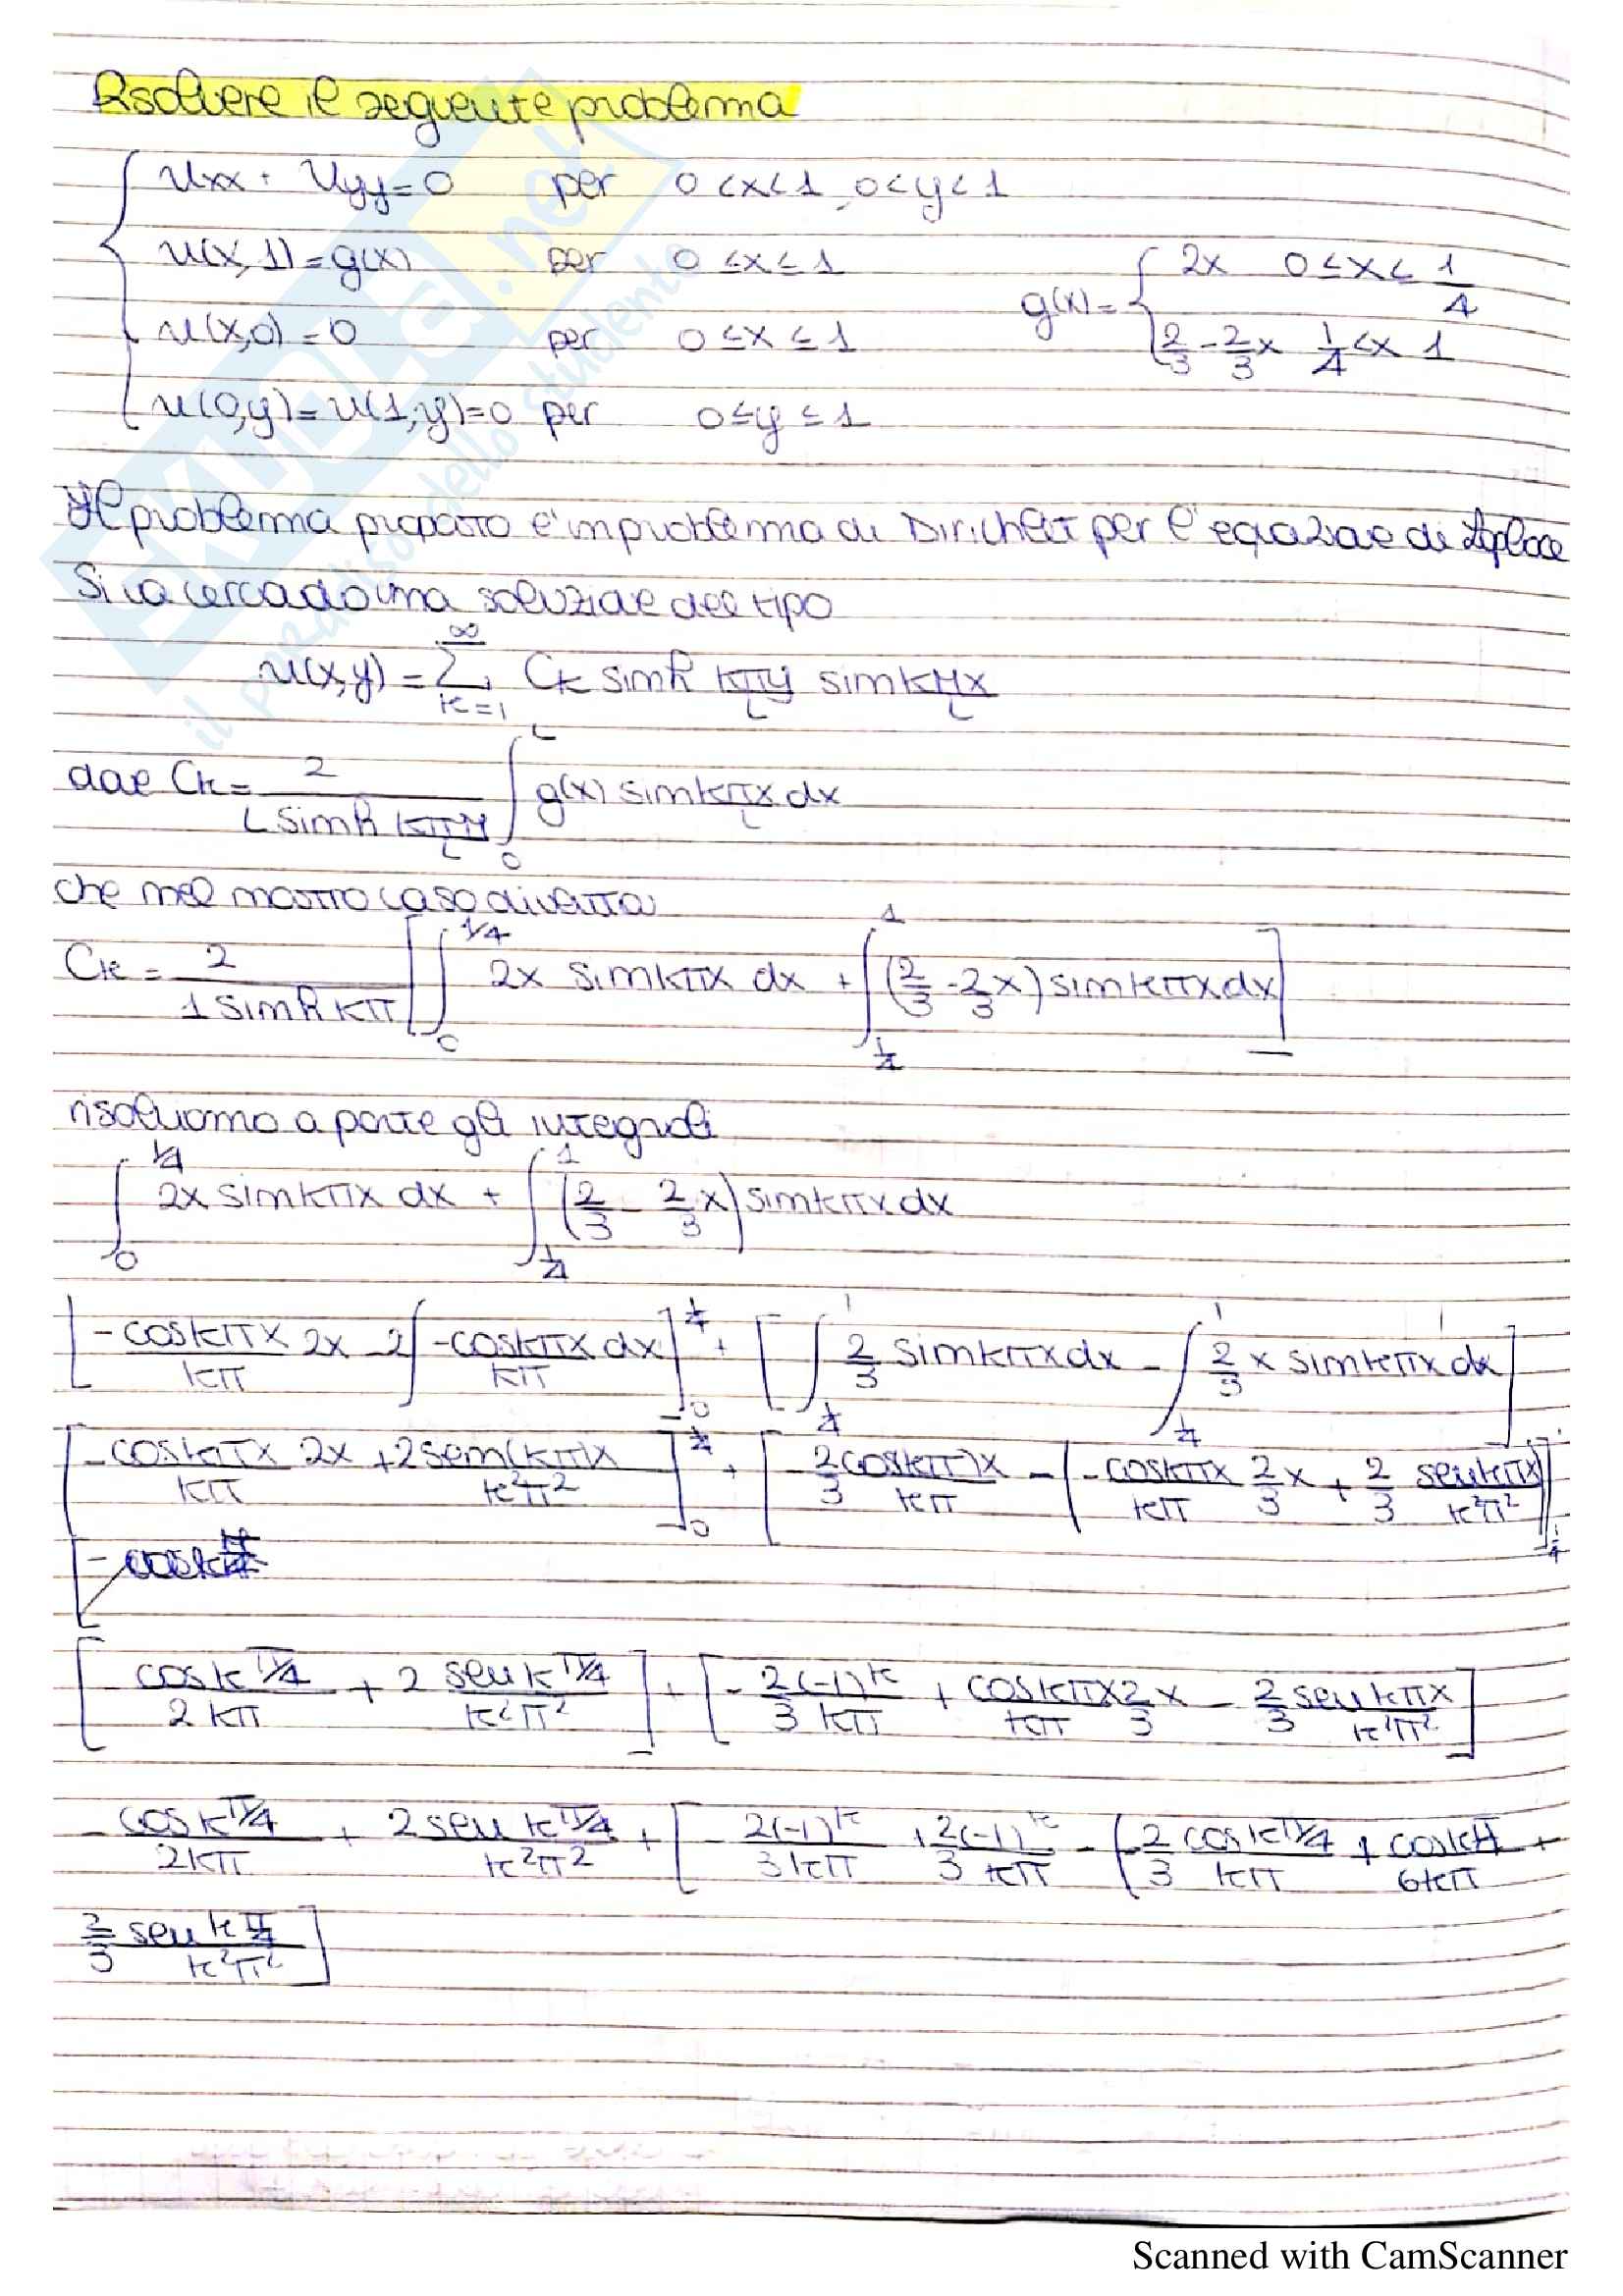 Risolvere il seguente problema
Uxx + Uyy = 0 per 0<x<1, 0<y<1
u(x,1) = g(x) per 0≤x≤1
g(x) = { 2x 0≤x≤ 1/4
2/3 - 2/3 x 1/4 <x 1
u(x,0) = 0 per 0≤x≤1
u(0,y) = u(1,y)=0 per 0≤y≤1
Il problema proposto è un problema di Dirichlet per l'equazione di Laplace
Si va cercando una soluzione del tipo
u(x,y) = ∑_{k=1}^{∞} Ck sinh kπy/L sin kπx/L
dove Ck = 2/(L sinh kπM/L) ∫_0^L g(x) sin kπx/L dx
che nel nostro caso diventa
Ck = 2/(1 sinh kπ) [ ∫_0^{1/4} 2x sin kπx dx + ∫_{1/4}^1 (2/3 - 2/3 x) sin kπx dx ]
risolviamo a parte gli integrali
∫_0^{1/4} 2x sin kπx dx + ∫_{1/4}^1 (2/3 - 2/3 x) sin kπx dx
[ -cos kπx/kπ 2x - 2∫ -cos kπx/kπ dx ]_0^{1/4} + [ ∫_{1/4}^1 2/3 sin kπx dx - ∫_{1/4}^1 2/3 x sin kπx dx ]
[ -cos kπx/kπ 2x + 2 sen(kπ)x/k²π² ]_0^{1/4} + [ -2/3 cos(kπ)x/kπ - ( -cos kπx/kπ 2/3 x + 2/3 sen kπx/k²π² ) ]_{1/4}^1
[ - cos k π/4 / 2kπ + 2 sen k π/4 / k²π² ] + [ - 2(-1)^k / 3 kπ + cos kπx/kπ 2/3 x - 2/3 sen kπx/k²π² ]
- cos k π/4 / 2kπ + 2 sen k π/4 / k²π² + [ - 2(-1)^k / 3kπ + 2(-1)^k / 3 kπ - ( -2/3 cos k π/4 / kπ + cos k π/4 / 6kπ +
2/3 sen k π/4 / k²π² ]
SKUOLA.net
il paradiso dello studente
Scanned with CamScanner